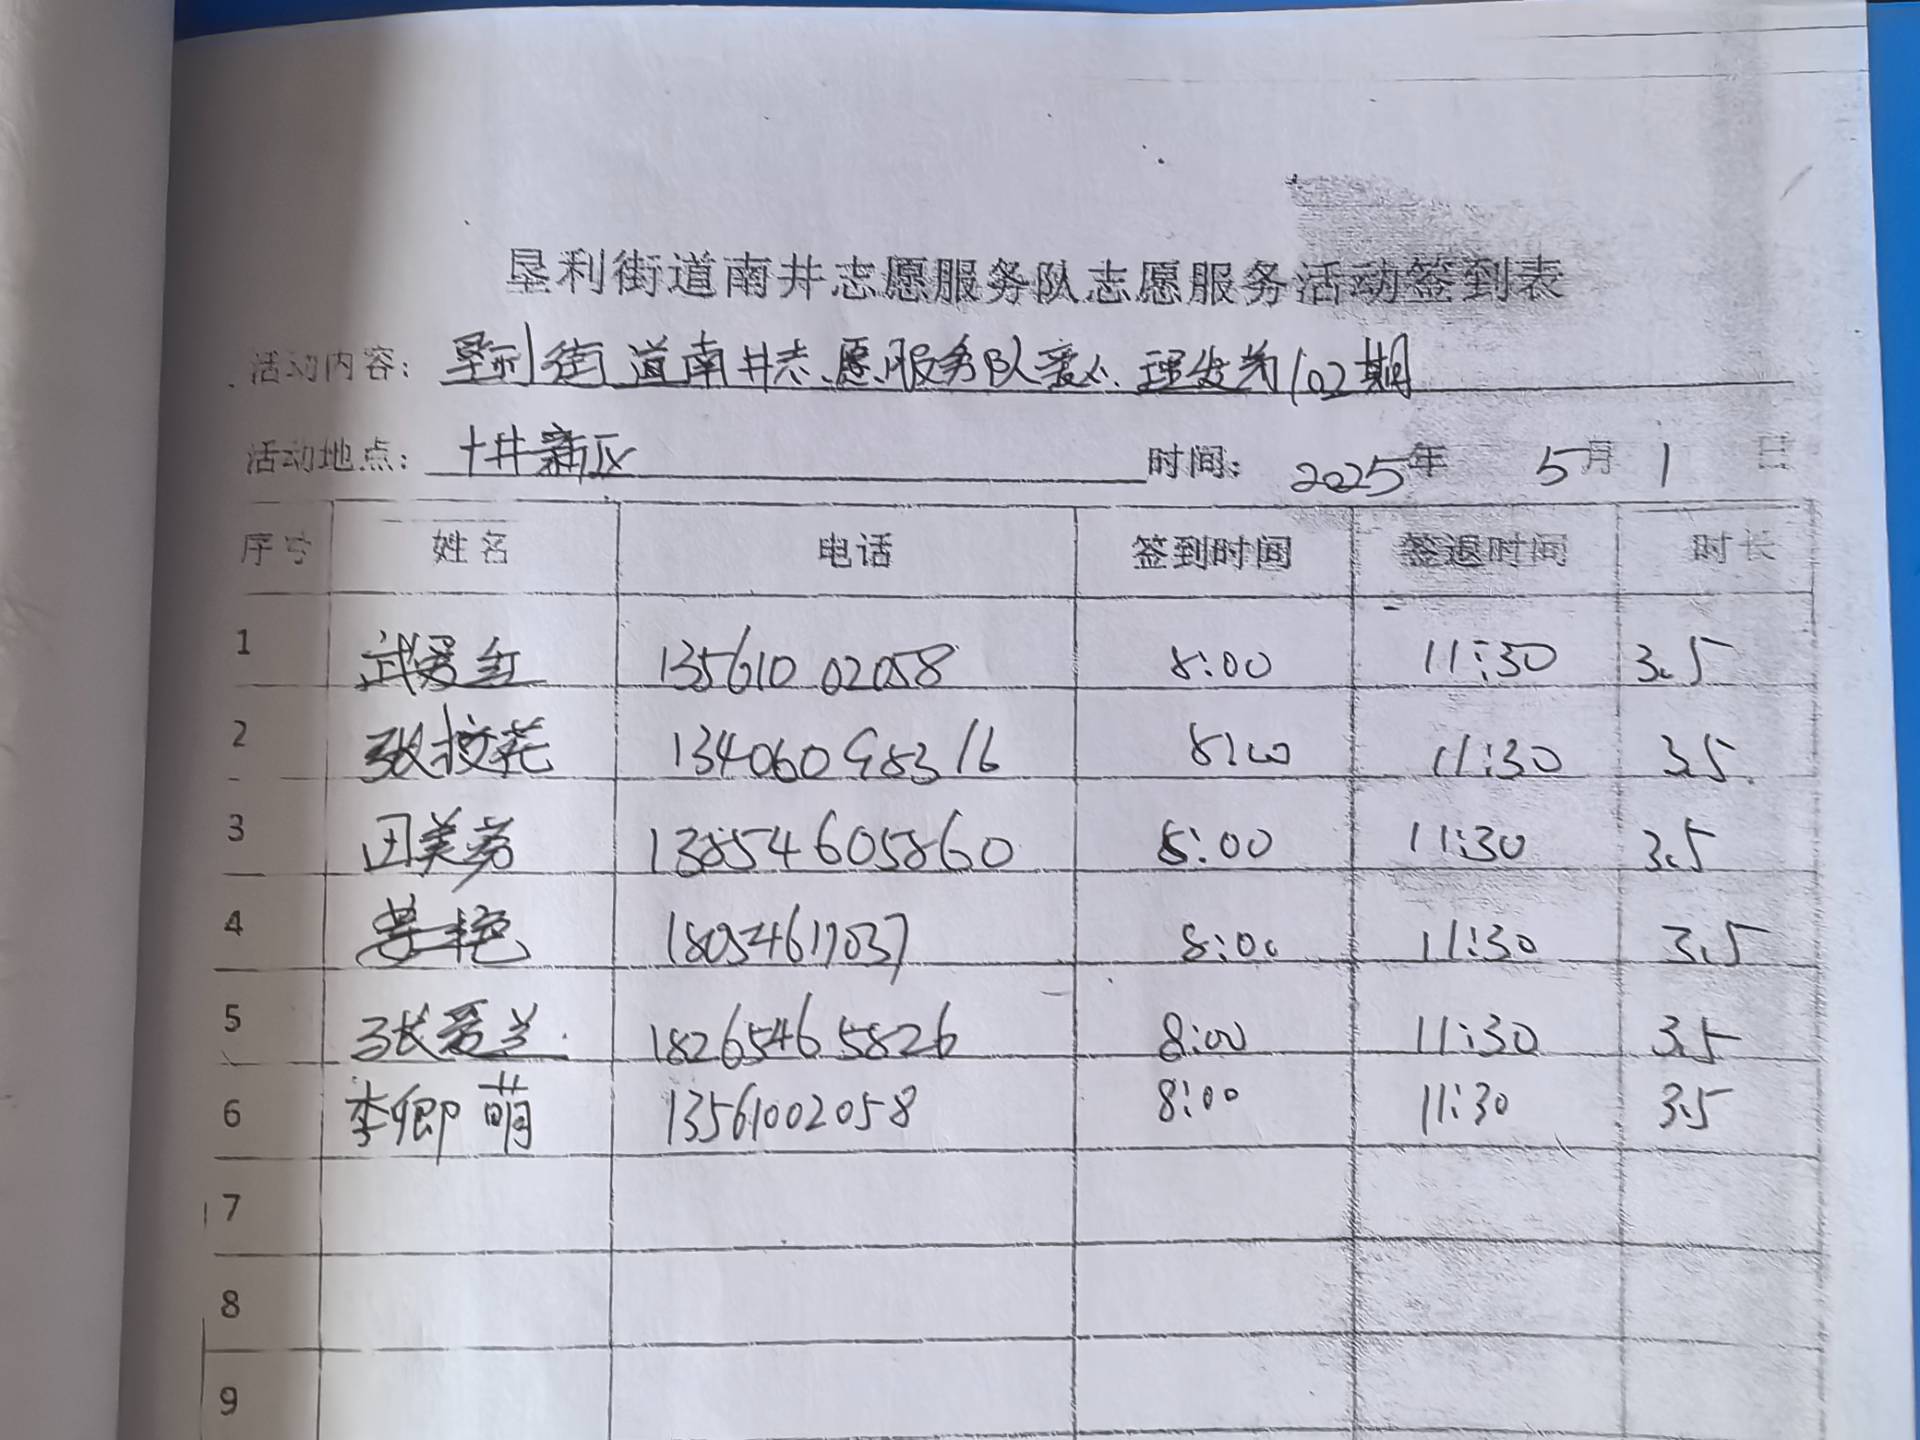 垦利街道南井志愿服务队志愿服务活动签到表
活动内容：垦利街道南井志愿服务队爱心理发第102期
活动地点：十井新区 时间：2025年 5月 1 日
序号 姓名 电话 签到时间 签退时间 时长
1 武爱红 13561002058 8:00 11:30 3.5
2 张校花 13406098316 8:00 11:30 3.5
3 田美芳 13854605860 8:00 11:30 3.5
4 姜艳 8:00 11:30 3.5
5 张爱兰 18265465826 8:00 11:30 3.5
6 李卿萌 13561002058 8:00 11:30 3.5
7
8
9